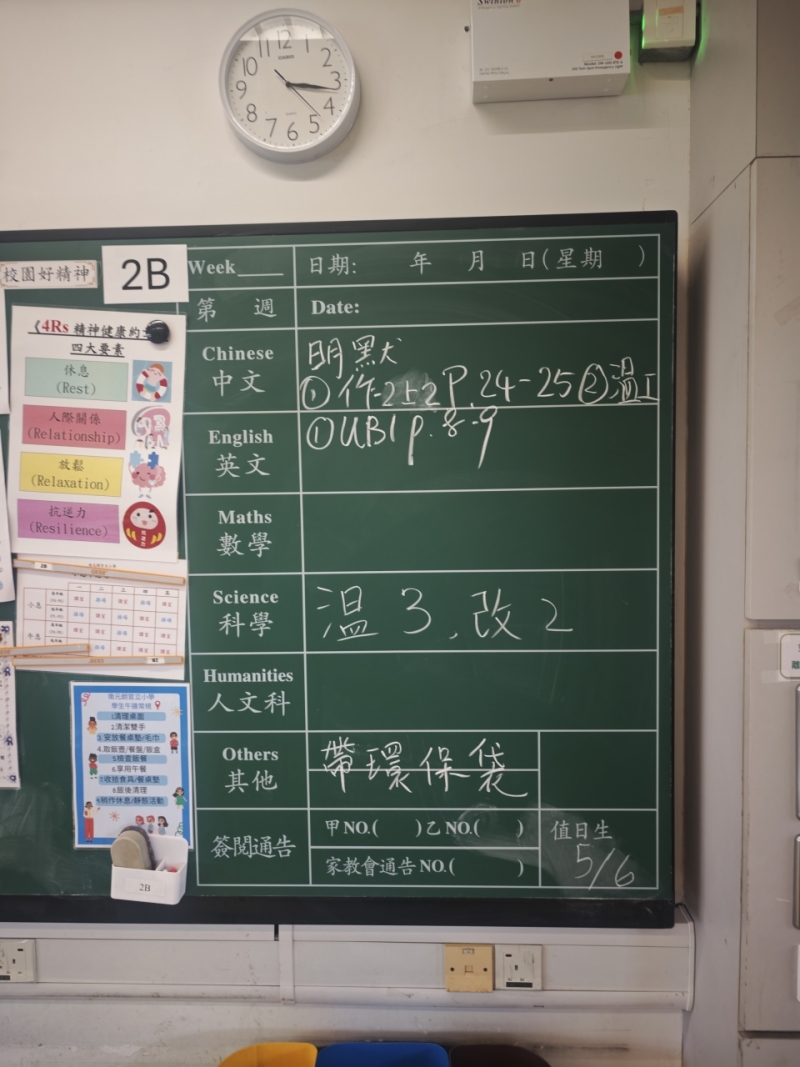 12
1
2
3
4
5
6
7
8
9
10
CASIO
Swinton
校園好精神
2B
Week____ 日期: 年 月 日(星期 )
第 週 Date:
Chinese 明默
中文 ①作2上2 P.24-25②溫工
English ①UB1 p.8-9
英文
Maths
數學
Science 溫3,改2
科學
Humanities
人文科
Others 帶環保袋
其他
簽閱通告 甲NO.( )乙NO.( ) 值日生
家教會通告NO.( ) 5/6
《4Rs 精神健康約
四大要素
休息
(Rest)
人際關係
(Relationship)
放鬆
(Relaxation)
抗逆力
(Resilience)
2B
一 二 三 四 五
小息
學生午膳常規
1.清理桌面
2.清潔雙手
3.安放餐桌墊/毛巾
4.取飯壺/餐盤/飯盒
5.檢查飯餐
6.享用午餐
7.收拾食具/餐桌墊
8.飯後清理
9.稍作休息/靜態活動
2B